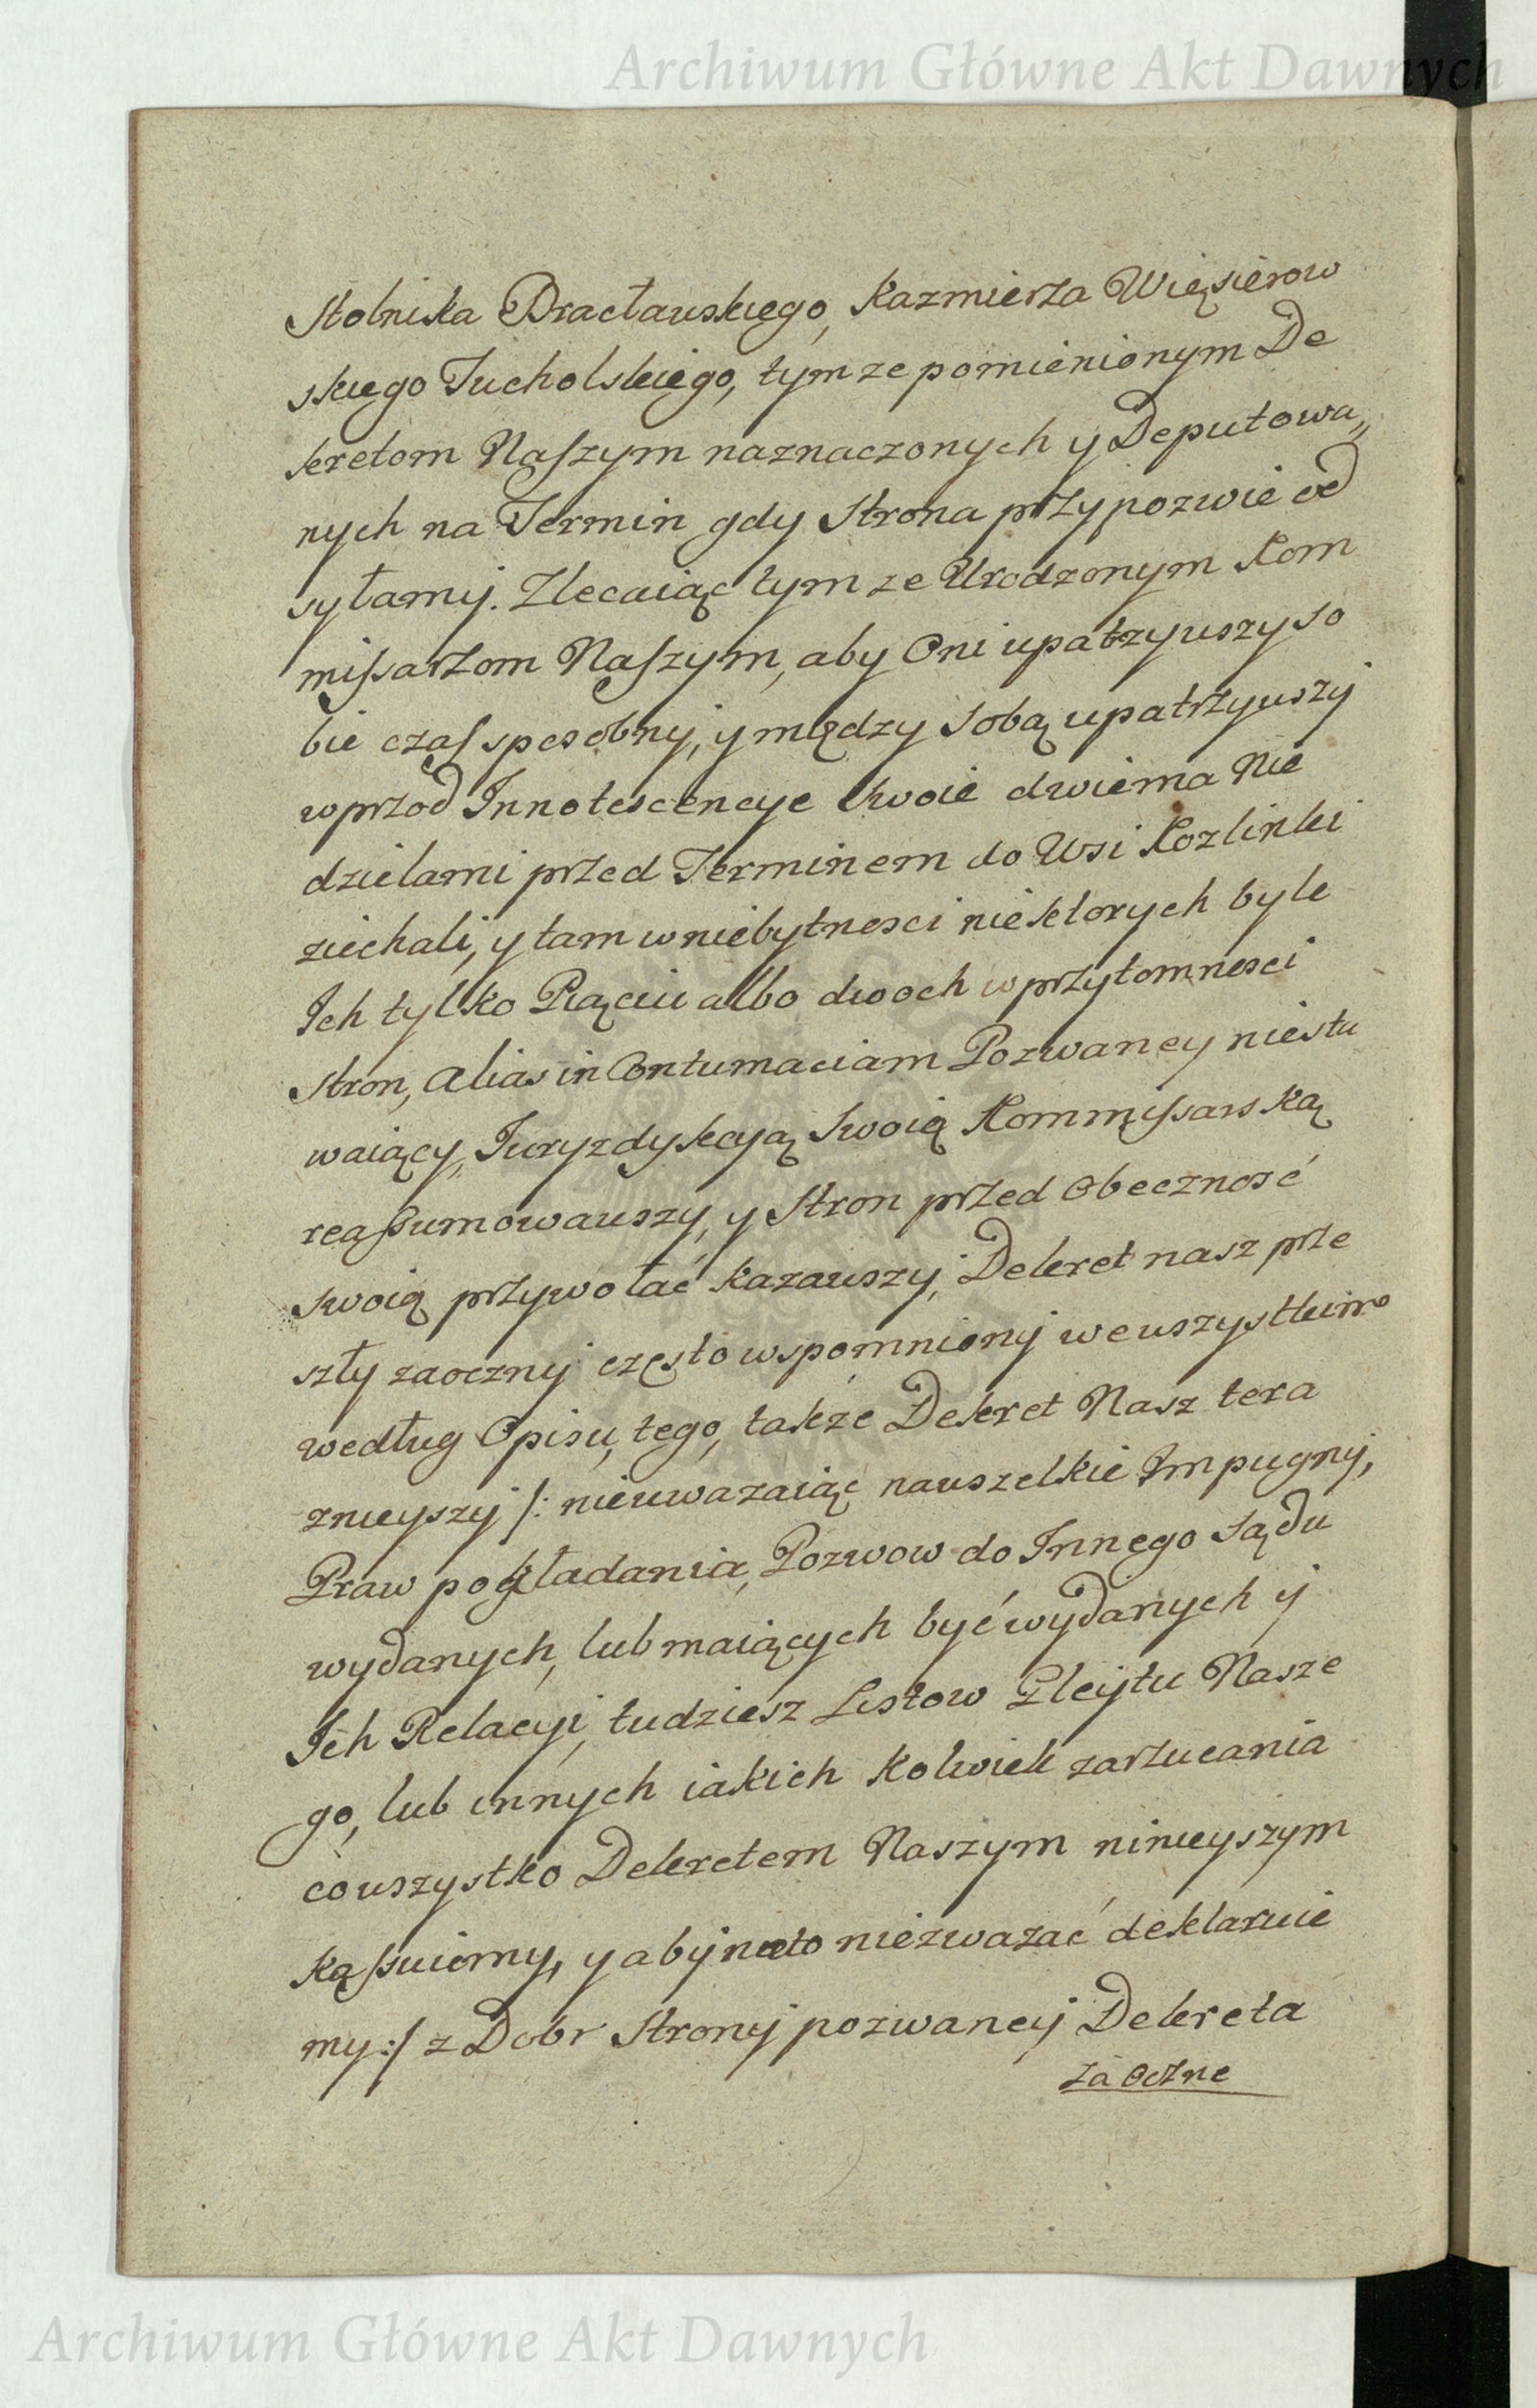 Archiwum Główne Akt Dawnych
Stolnika Bracławskiego, Kazmierza Więsierow
skiego Tucholskiego, tymze pomienionym De
kretom Naszym naznaczonych y Deputowa„
nych na Termin gdy Strona przypozwie od
syłamy. Zlecaiąc tymze Urodzonym Kom
missarzom Naszym, aby Oni upatrzywszy so
bie czas sposobny, y między sobą upatrzywszy
wprzod Innotescencye swoie dwiema Nie
dzielami przed Terminem do Wsi Kozlinki
ziechali, y tam w niebytnosci niektorych byle
Ich tylko Pięciu albo dwoch w przytomnosci
Stron, alias in Contumaciam Pozwaney niesta
waiący, Juryzdykcyą swoią Kommissarską
reassumowawszy, y Stron przed Obecznosć
swoią przywołać kazawszy, Dekret nasz prze
szły zaoczny często wspomniony we wszystkim
według Opisu, tego, także Dekret Nasz tera
znieyszy /: nieuwazaiąc na wszelkie Impugny,
Praw pokładania, Pozwow do Innego Sądu
wydanych, lub maiących być wydanych y
Ich Relacyi, tudziesz Listow Gleytu Nasze
go, lub innych iakich kolwiek zarzucania
co wszystko Dekretem Naszym ninieyszym
kassuiemy, y aby na to niezwazać deklaruie
my :/ z Dobr Strony pozwaney Dekreta
zaoczne
Archiwum Główne Akt Dawnych